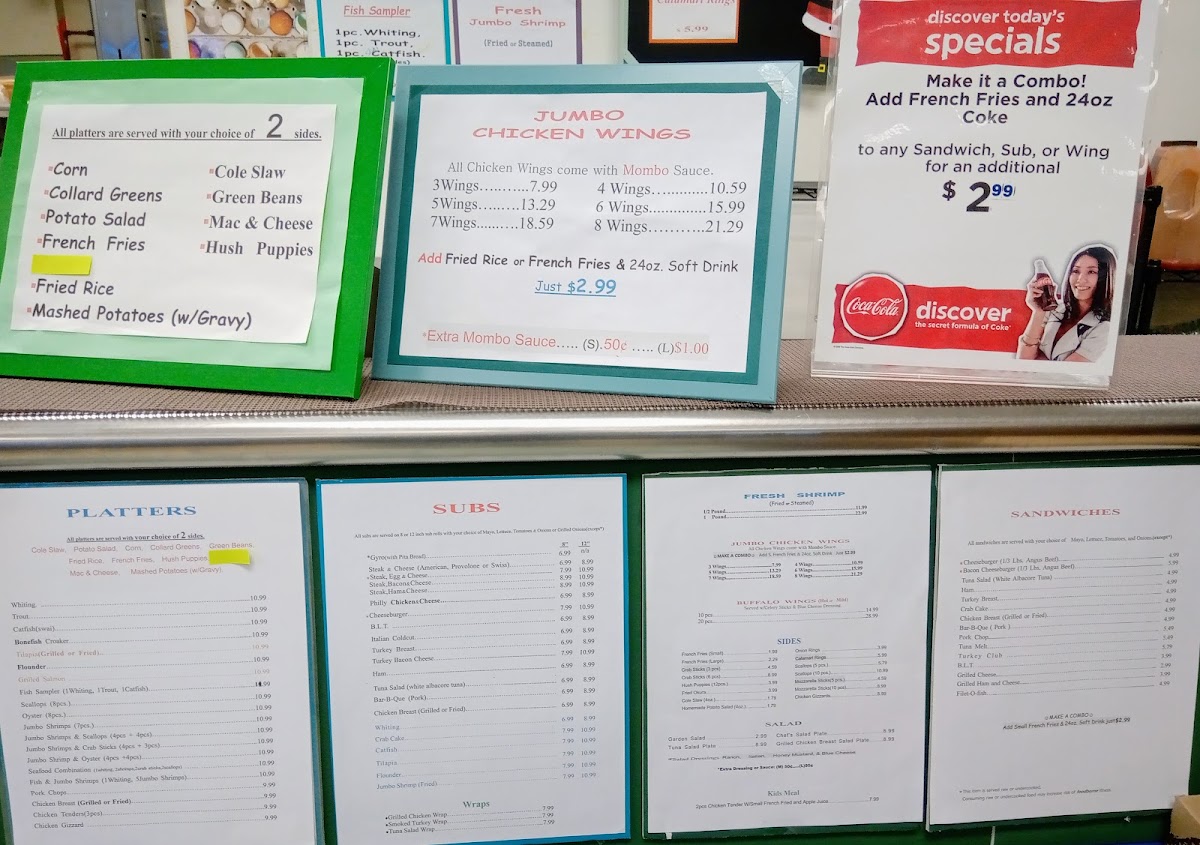 Fish Sampler
1pc. Whiting,
1pc. Trout,
1pc. Catfish.
Fresh
Jumbo Shrimp
(Fried or Steamed)
Calamari Rings
$ 5.99
All platters are served with your choice of 2 sides.
Corn
Collard Greens
Potato Salad
French Fries
Fried Rice
Mashed Potatoes (w/Gravy)
Cole Slaw
Green Beans
Mac & Cheese
Hush Puppies
JUMBO
CHICKEN WINGS
All Chicken Wings come with Mombo Sauce.
3Wings..........7.99 4 Wings.............10.59
5Wings.........13.29 6 Wings..............15.99
7Wings.........18.59 8 Wings...........21.29
Add Fried Rice or French Fries & 24oz. Soft Drink
Just $2.99
*Extra Mombo Sauce..... (S).50¢ ..... (L)$1.00
discover today's
specials
Make it a Combo!
Add French Fries and 24oz
Coke
to any Sandwich, Sub, or Wing
for an additional
$ 2.99
Coca-Cola
discover
the secret formula of Coke
PLATTERS
All platters are served with your choice of 2 sides.
Cole Slaw, Potato Salad, Corn, Collard Greens, Green Beans,
Fried Rice, French Fries, Hush Puppies,
Mac & Cheese, Mashed Potatoes (w/Gravy),
Whiting..........10.99
Trout..........10.99
Catfish(swai)..........10.99
Bonefish Croaker..........10.99
Tilapia(Grilled or Fried)..........10.99
Flounder..........10.99
Grilled Salmon..........10.99
Fish Sampler (1Whiting, 1Trout, 1Catfish)
Scallops (8pcs.)..........10.99
Oyster (8pcs.)..........10.99
Jumbo Shrimps (7pcs.)..........10.99
Jumbo Shrimps & Scallops (4pcs + 4pcs)..........10.99
Jumbo Shrimps & Crab Sticks (4pcs + 3pcs)..........10.99
Jumbo Shrimp & Oyster (4pcs +4pcs)..........10.99
Seafood Combination..........10.99
Fish & Jumbo Shrimps (1Whiting, 5Jumbo Shrimps)..........10.99
Pork Chops..........9.99
Chicken Breast (Grilled or Fried)..........9.99
Chicken Tenders(3pcs)..........9.99
Chicken Gizzard..........9.99
SUBS
All subs are served on 8 or 12 inch sub rolls with your choice of Mayo, Lettuce, Tomatoes & Onions or Grilled Onions(except*)
8" 12"
*Gyro(with Pita Bread)..........6.99
Steak & Cheese (American, Provolone or Swiss)..........6.99 8.99
Steak, Egg & Cheese..........7.99 10.99
Steak,Bacon&Cheese..........8.99 10.99
Steak,Ham&Cheese..........8.99 10.99
Philly Chicken&Cheese..........6.99 8.99
Cheeseburger..........7.99 10.99
B.L.T..........6.99 8.99
Italian Coldcut..........6.99 8.99
Turkey Breast..........6.99 8.99
Turkey Bacon Cheese..........7.99 10.99
Ham..........6.99 8.99
Tuna Salad (white albacore tuna)..........6.99 8.99
Bar-B-Que (Pork)..........6.99 8.99
Chicken Breast (Grilled or Fried)..........6.99 8.99
Whiting..........6.99 8.99
Crab Cake..........7.99 10.99
Catfish..........7.99 10.99
Tilapia..........7.99 10.99
Flounder..........7.99 10.99
Jumbo Shrimp (Fried)..........7.99 10.99
Wraps
Grilled Chicken Wrap..........7.99
Smoked Turkey Wrap..........7.99
Tuna Salad Wrap..........7.99
FRESH SHRIMP
(Fried or Steamed)
1/2 Pound
1 Pound
JUMBO CHICKEN WINGS
All Chicken Wings come with Mombo Sauce
3 Wings..........7.99 4 Wings..........10.59
5 Wings..........13.29 6 Wings..........15.99
7 Wings..........18.59 8 Wings..........21.29
BUFFALO WINGS (Hot or Mild)
Served w/Celery Sticks & Blue Cheese Dressing
10 pcs..........14.99
20 pcs..........28.99
SIDES
French Fries (Small)
French Fries (Large)
Crab Sticks (3 pcs)
Crab Sticks (6 pcs)
Hush Puppies (12pcs.)
Fried Okura
Cole Slaw (4oz.)
Homemade Potato Salad (4oz.)
Onion Rings
Calamari Rings
Scallops (5 pcs.)
Scallops (10 pcs.)
Mozzarella Sticks(5 pcs.)
Mozzarella Sticks(10 pcs)
Chicken Gizzards
SALAD
Garden Salad..........2.99 Chef's Salad Plate..........8.99
Tuna Salad Plate..........8.99 Grilled Chicken Breast Salad Plate..........8.99
*Salad Dressings, Ranch, Italian, Honey Mustard, & Blue Cheese
Kids Meal
2pcs Chicken Tender W/Small French Fried and Apple Juice..........7.99
SANDWICHES
All sandwiches are served with your choice of Mayo, Lettuce, Tomatoes, and Onions(except*)
Cheeseburger (1/3 Lbs, Angus Beef)..........4.99
Bacon Cheeseburger (1/3 Lbs, Angus Beef)
Tuna Salad (White Albacore Tuna)
Ham
Turkey Breast
Crab Cake
Chicken Breast (Grilled or Fried)
Bar-B-Que ( Pork )
Pork Chop
Tuna Melt
Turkey Club
B.L.T.
Grilled Cheese
Grilled Ham and Cheese
Filet-O-fish
MAKE A COMBO
Add Small French Fries & 24oz. Soft Drink just$2.99